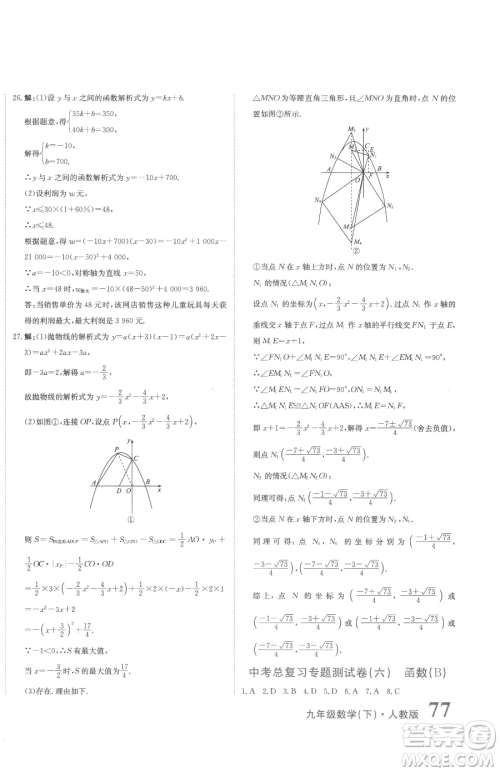 26.解:(1)设 y 与 x 之间的函数解析式为 y=kx+b.
根据题意,得{35k+b=350, 40k+b=300.
解得{k=-10, b=700.
∴y 与 x 之间的函数解析式为 y=-10x+700.
(2)设利润为 w 元,
∵x≤30×(1+60%)=48,
∴x≤48,
根据题意,得 w=(-10x+700)(x-30)=-10x²+1 000x-
21 000=-10(x-50)²+4 000,
∵a=-10<0,对称轴为直线 x=50,
∴当 x=48 时,w最大=-10×(48-50)²+4 000=3 960.
答:当销售单价为 48 元时,该网店销售这种儿童玩具每月获得
最大利润,最大利润是 3 960 元.
27.解:(1)抛物线的解析式为 y=a(x+3)(x-1)=a(x²+2x
-3)=ax²+2ax-3a,
即-3a=2,解得 a=-2/3,
故抛物线的解析式为 y=-2/3x²-4/3x+2.
(2)如图①,连接 OP,设点 P(x,-2/3x²-4/3x+2).
y
P
C
A D O B x
①
则 S=S四边形ADCP=S△APO+S△CPO-S△ODC=1/2AO·yP+
1/2OC·|xP|-1/2CO·OD
=1/2×3×(-2/3x²-4/3x+2)+1/2×2×(-x)-1/2×2×1
=-x²-3x+2
=-(x+3/2)²+17/4,
∵-1<0,故 S 有最大值,
当 x=-3/2 时,S 的最大值为 17/4.
(3)存在.理由如下:
△MNO 为等腰直角三角形,且∠MNO 为直角时,点 N 的位
置如图②所示.
②
①当点 N 在 x 轴上方时,点 N 的位置为 N₁,N₂,
N₁ 的情况(△M₁N₁O):
设点 N₁ 的坐标为(x,-2/3x²-4/3x+2),则 M₁E=x+1.
过点 N₁ 作 x 轴的垂线交 x 轴于点 F,过点 M₁ 作 x 轴的
平行线交 N₁F 于点 E,
∵∠FN₁O+∠M₁N₁E=90°,∠M₁N₁E+∠EM₁N₁=90°,
∴∠EM₁N₁=∠FN₁O.
∵∠M₁EN₁=∠N₁FO=90°,ON₁=M₁N₁,
∴△M₁N₁E≌△N₁OF(AAS),∴M₁E=N₁F,
即 x+1=-2/3x²-4/3x+2,解得 x=(-7±√73)/4(舍去负值),
则点 N₁((-7+√73)/4,(-3+√73)/4).
N₂ 的情况(△M₂N₂O):
同理可得:点 N₂((-1-√73)/4,(-3+√73)/4).
②当点 N 在 x 轴下方时,点 N 的位置为 N₃,N₄,
同理可得:点 N₃,N₄ 的坐标分别为((-1+√73)/4,
(-3-√73)/4),((-7-√73)/4,(-3-√73)/4).
综上,点 N 的坐标为((-7+√73)/4,(-3+√73)/4)或
((-1-√73)/4,(-3+√73)/4)或((-1+√73)/4,(-3-√73)/4)或
((-7-√73)/4,(-3-√73)/4).
中考总复习专题测试卷(六) 函数(B)
1.A 2.D 3.D 4.C 5.A 6.D 7.A 8.C
九年级数学(下)·人教版 77